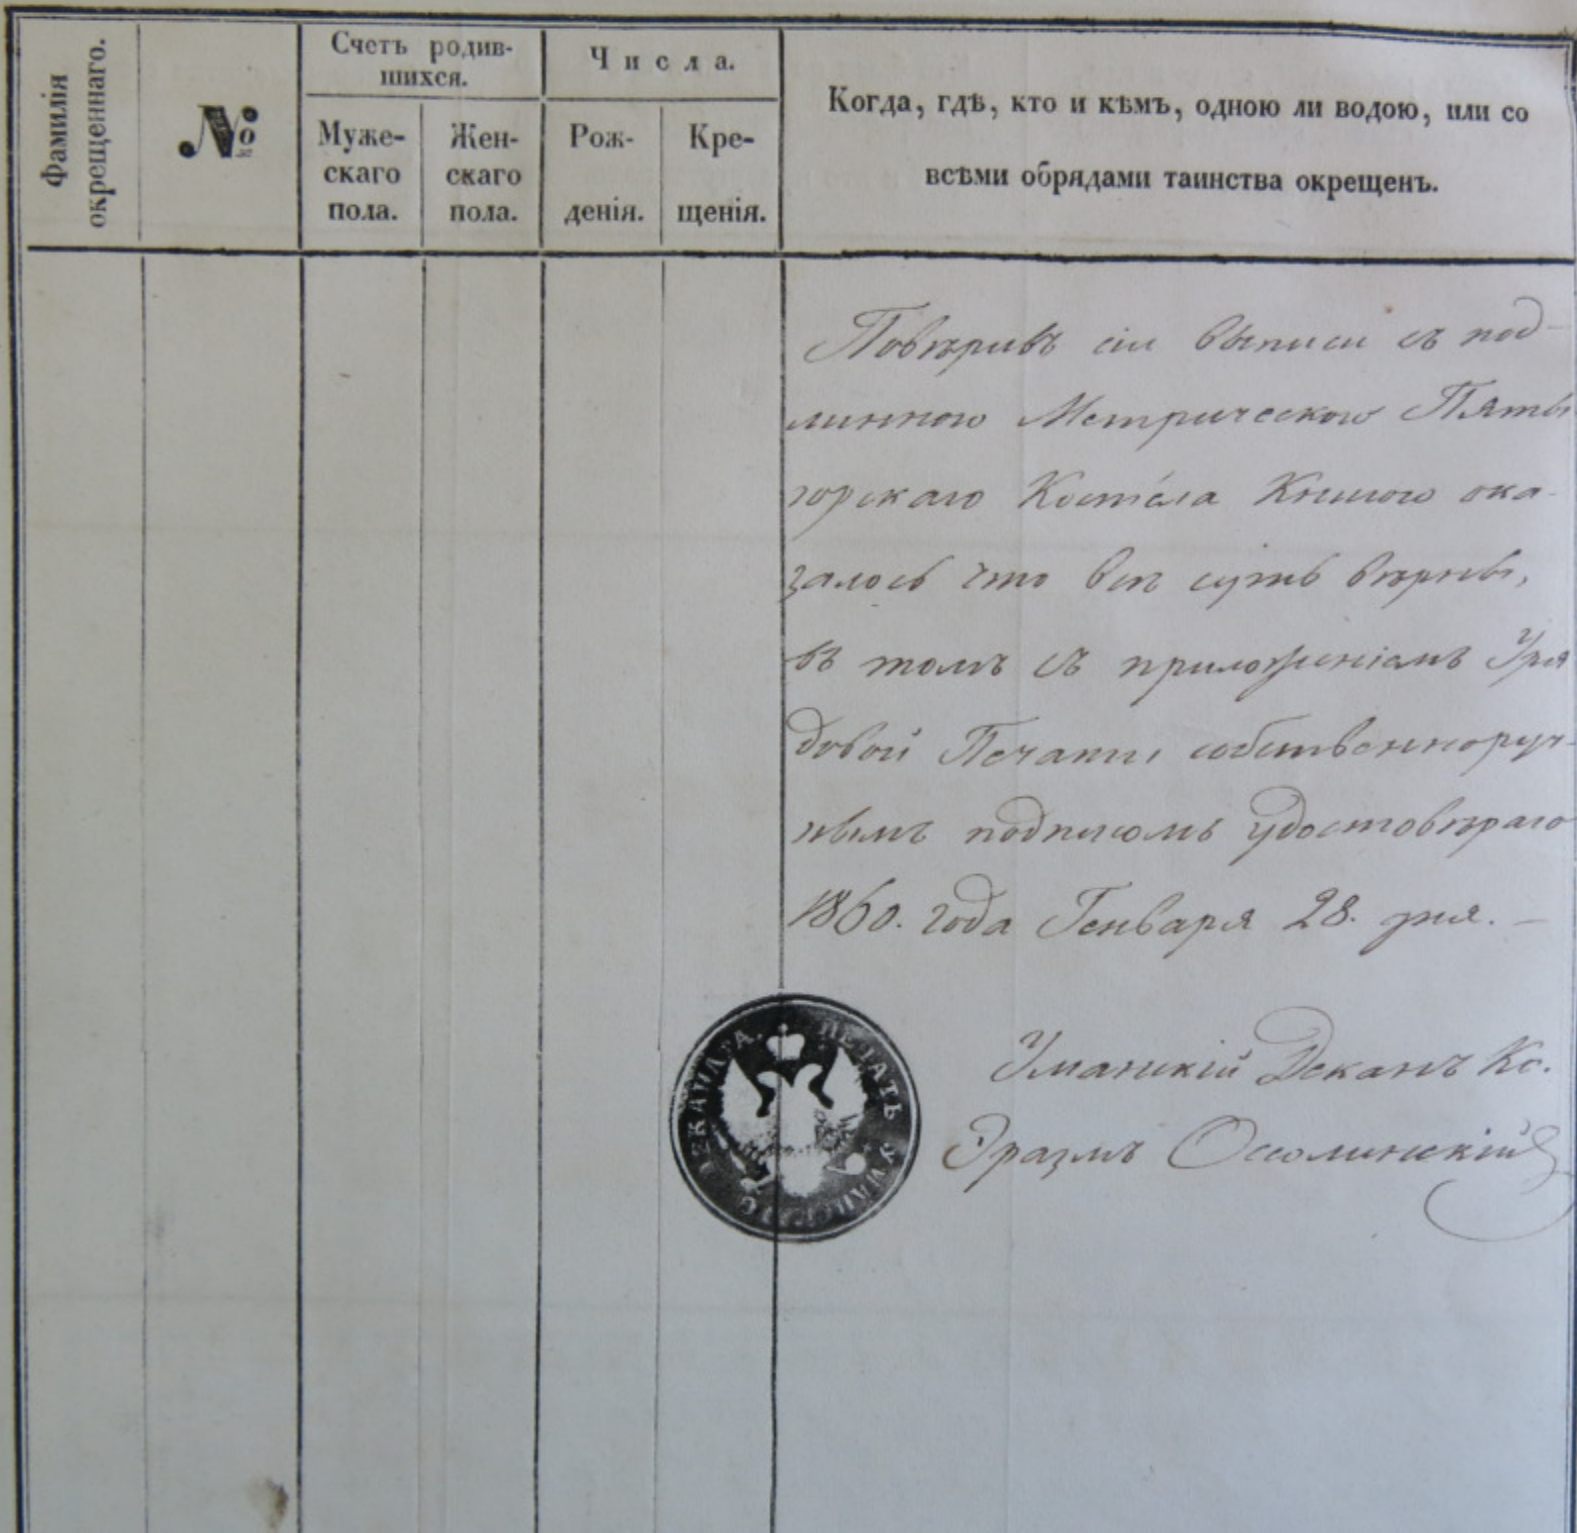 Фамилія
окрещеннаго.
№
Счетъ родив-
шихся.
Муже-
скаго
пола.
Жен-
скаго
пола.
Числа.
Рож-
денія.
Кре-
щенія.
Когда, гдѣ, кто и кѣмъ, одною ли водою, или со
всѣми обрядами таинства окрещенъ.
Повѣривъ сіи выписи съ под-
линною Метрическою Пяты
горскаго Костёла Книгою ока-
залось что всѣ суть вѣрны,
въ томъ съ приложеніемъ Уря
довой Печати, собственноруч-
нымъ подписомъ удостовѣряю
1860. года Генваря 28. дня. –
Уманскій Деканъ Кс.
Эразмъ Оссолинскій
ПЕЧАТЬ УМАНСКАГО ДЕКАНАТА.